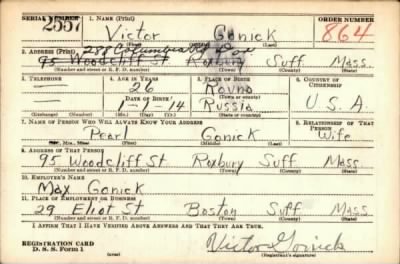 SERIAL NUMBER 1. NAME (Print) ORDER NUMBER
2557 Victor Gonick 864
2. ADDRESS (Print) 288 Columbia Rd Dor
95 Woodcliff St Roxbury Suff Mass
(Number and street or R. F. D. number) (Town) (County) (State)
3. TELEPHONE 4. AGE IN YEARS 5. PLACE OF BIRTH 6. COUNTRY OF CITIZENSHIP
— 26 Kovno
(Town or county)
DATE OF BIRTH
— 1-1-14 Russia U.S.A.
(Exchange) (Number) (Mo.) (Day) (Yr.) (State or country)
7. NAME OF PERSON WHO WILL ALWAYS KNOW YOUR ADDRESS 8. RELATIONSHIP OF THAT PERSON
Pearl Gonick Wife
9. ADDRESS OF THAT PERSON
95 Woodcliff St Roxbury Suff Mass
(Number and street or R. F. D. number) (Town) (County) (State)
10. EMPLOYER'S NAME
Max Gonick
11. PLACE OF EMPLOYMENT OR BUSINESS
29 Eliot St Boston Suff Mass
(Number and street or R. F. D. number) (Town) (County) (State)
I AFFIRM THAT I HAVE VERIFIED ABOVE ANSWERS AND THAT THEY ARE TRUE.
REGISTRATION CARD
D. S. S. Form 1 (over) Victor Gonick
(Registrant's signature)